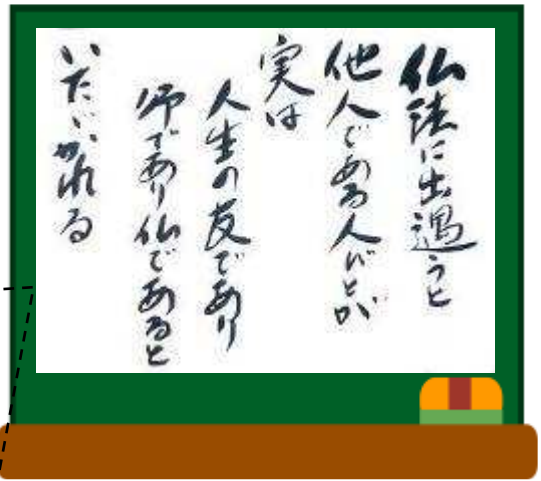 仏法に出遇うと
他人である人びとが
実は
人生の友であり
師であり仏であると
いただかれる